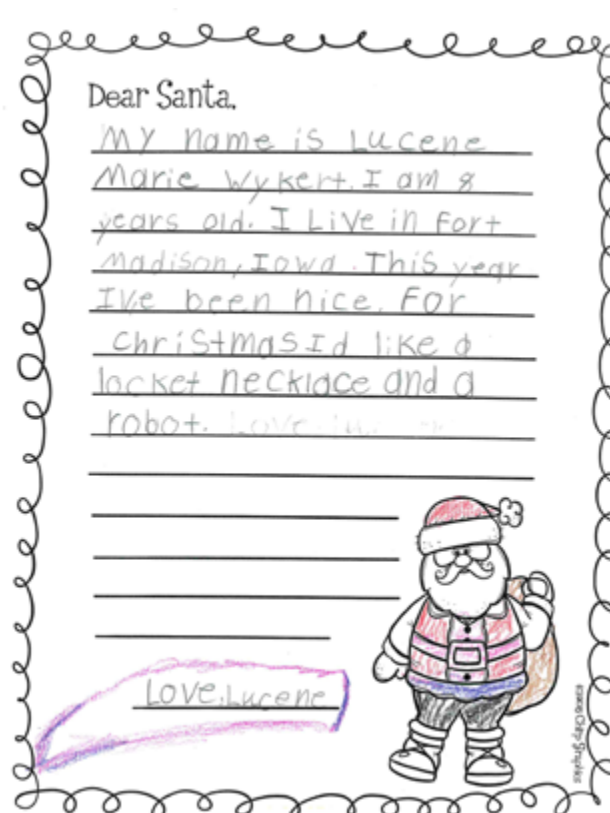 Dear Santa,
My name is Lucene
Marie Wykert. I am 8
years old. I Live in Fort
Madison, Iowa. This year
I've been nice. For
christmas I d like a
locket necklace and a
robot. Love
Love, Lucene